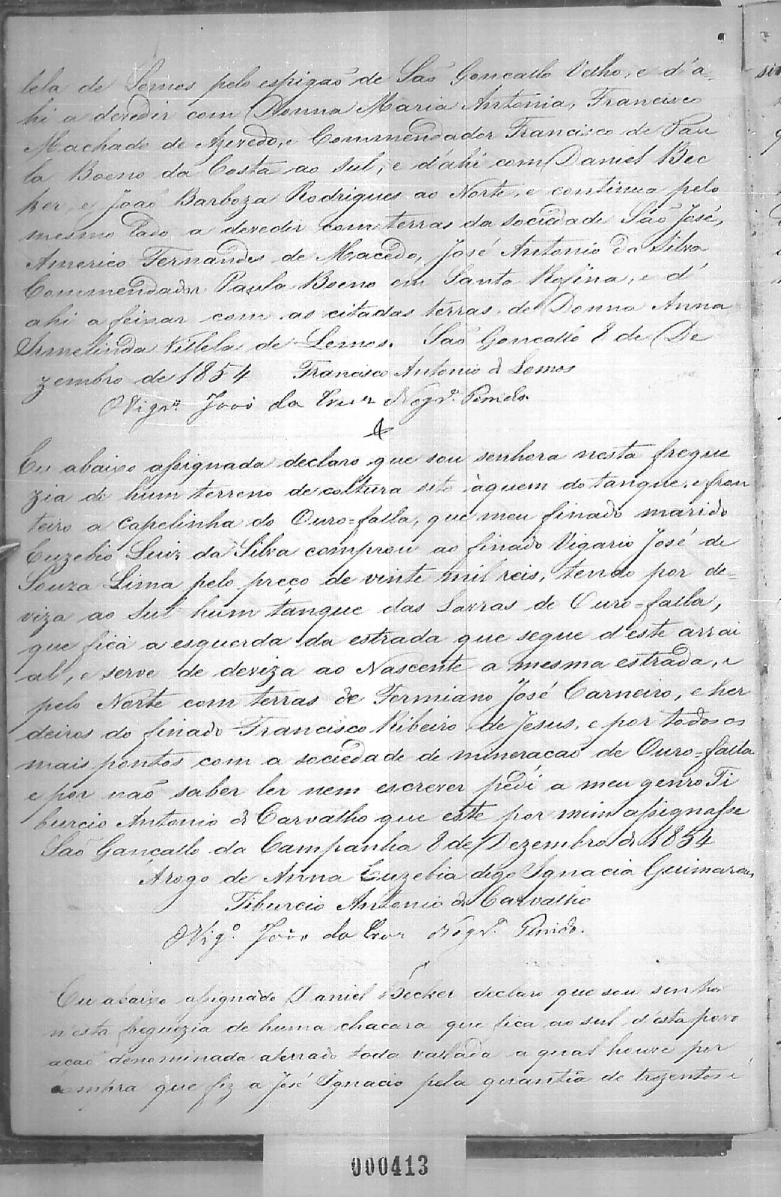 lela de Lemos pelo espigaõ de Saõ Goncallo Velho, e d'a-
hi a devedir com Donna Maria Antonia, Francisco
Machado de Azevedo, e Commendador Francisco de Pau
la Boeno da Costa ao sul, e d'ahi com Daniel Bec
ker, e Joaõ Barboza Rodrigues ao Norte, e continua pelo
mesmo lado a devedir com terras da sociedade Saõ José,
Americo Fernandes de Macedo, José Antonio da Silva
Commendador Paula Boeno em Santa Rofina, e d'
ahi a feixar com as citadas terras de Donna Anna
Irmelinda Villela de Lemos. Saõ Goncallo 8 de De
zembro de 1854 Francisco Antonio de Lemos
O Vigrº. Joaõ da Cruz Nogrª. Penido
Eu abaixo assignada declaro que sou senhora nesta fregue
zia de hum terreno de coltura sito áquem do tanque, e fron
teiro a capelinha do Ouro-falla, que meu finado marido
Euzebio Luiz da Silva comprou ao finado Vigario José de
Souza Lima pelo preço de vinte mil reis, tendo por de-
viza ao Sul hum tanque das Lavras de Ouro-falla,
que fica a esquerda da estrada que segue d'este arrai
al, e serve de deviza ao Nascente a mesma estrada, e
pelo Norte com terras de Fermiano José Carneiro, e her
deiros do finado Francisco Ribeiro de Jesus, e por todos os
mais pontos com a sociedade de mineracaõ de Ouro-falla
e por naõ saber ler nem escrever pedi a meu genro Ti
burcio Antonio de Carvalho que este por mim assignasse
Saõ Gancallo da Campanha 8 de Dezembro de 1854
Arogo de Anna Euzebia digo Ignacia Guimaraes
Tiburcio Antonio de Carvalho
O Vigº. Joaõ da Cruz Nogrª. Penido.
Eu abaixo assignado Daniel Becker declaro que sou senhor
nesta freguezia de huma chacara que fica ao sul d'esta povo
acaõ denominada aterrado toda vallada a qual houve por
compra que fiz a José Ignacio pela quantia de trezentos e
000413